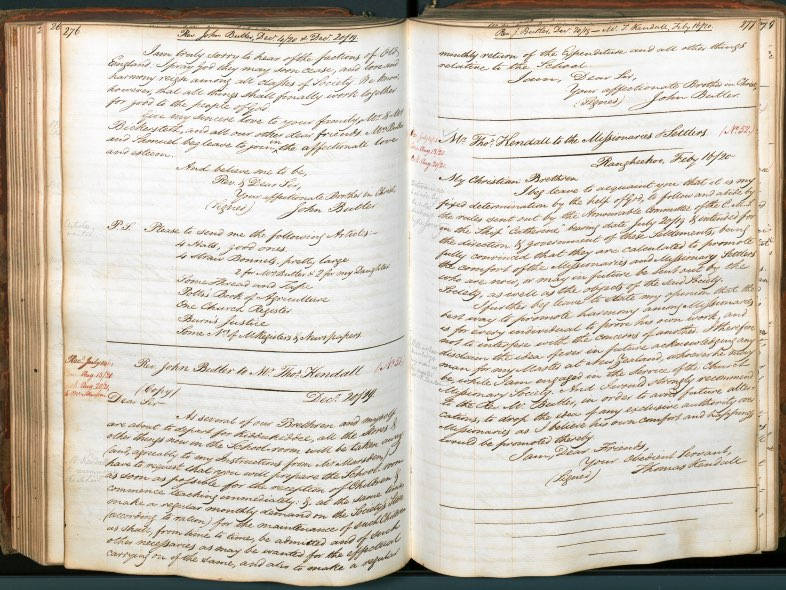 276
Rev. John Butler, Dec. 4/20 & Dec. 20/19
I am truly sorry to hear of the factions of Old
England. I pray God they may soon cease, and love and
harmony reign among all classes of Society. We know,
however, that all things shall finally work together
for good to the people of God.
Give my sincere love to your friends, Mr. & Mrs.
Bickersteth, and all our other dear friends. Mrs. Butler
and Samuel beg leave to join in the affectionate love
and esteem.
And believe me to be,
Rev. & Dear Sir,
Your affectionate Brother in Christ,
(Signed) John Butler.
P.S. Please to send me the following Articles:
4 Hats, good ones
4 Straw Bonnets, pretty large
2 for Mrs Butler & 2 for my Daughter
Some Thread and Tape
Potts's Book of Agriculture
One Church Register
Burn's Justice
Some Nos. of Mg Registers & Newspapers
Rev. John Butler to Mr. Thos. Kendall (No. 51.
(Copy)
Dec. 20/19.
Dear Sir—
As several of our Brethren and myself
are about to depart for Kiddeekiddee, all the stores &
other things now in the School-room will be taken away
(and agreeably to my Instructions from Mr. Marsden) I
have to request that you will prepare the School-room
as soon as possible for the reception of Children &
commence teaching immediately; & at the same time
make a regular monthly demand on the Society's Store
(according to ration) for the maintenance of such Children
as shall, from time to time, be admitted and of such
other necessaries as may be wanted for the effectual
carrying on of the same, and also to make a regular
Rev. J. Butler, Dec. 20/19 — Mr. T. Kendall, Feb. 16/20. 277
monthly return of the Expenditure and all other things
relative to the School.
I am, Dear Sir,
Your affectionate Brother in Christ,
(Signed) John Butler.
Mr. Thos. Kendall to the Missionaries & Settlers (No. 52.)
Rangheehoo, Feb. 16/20
My Christian Brethren
I beg leave to acquaint you that it is my
fixed determination by the help of God, to follow and abide by
the rules sent out by the Honourable Committee of the C.M.S.
in the Ship "Catherine" bearing date July 20/19 & intended for
the direction & government of these Settlements, being
fully convinced that they are calculated to promote
the comfort of the Missionaries and Missionary Settlers
who are now, or may in future be sent out by the
Society, as well as the objects of the said Society.
I further beg leave to state my opinion, that the
best way to promote harmony among Missionaries
is for every individual to prove his own work, and
not to interfere with the concerns of another. I therefore
disclaim the idea of ever in future acknowledging any
man for my Master at New Zealand, whoever he may
be, while I am engaged in the Service of the Church
Missionary Society. And I would strongly recommend
to the Rev. Mr. Butler, in order to avoid future alter-
cations, to drop the idea of any exclusive authority over
Missionaries as I believe his own comfort and happiness
would be promoted thereby.
I am, Dear Friends,
Your obedient Servant,
(Signed) Thomas Kendall